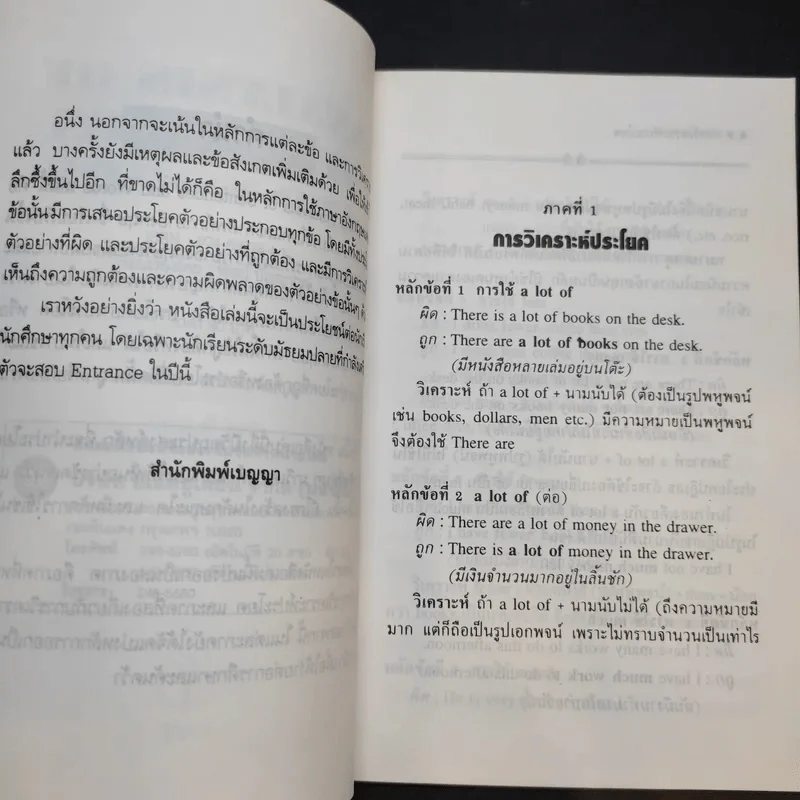 อนึ่ง นอกจากจะเน้นในหลักการแต่ละข้อ และการวิเคร
แล้ว บางครั้งยังมีเหตุผลและข้อสังเกตเพิ่มเติมด้วย เพื่อให้
ลึกซึ้งขึ้นไปอีก ที่ขาดไม่ได้ก็คือ ในหลักการใช้ภาษาอังกฤษ
ข้อนั้นมีการเสนอประโยคตัวอย่างประกอบทุกข้อ โดยมีทั้ง
ตัวอย่างที่ผิด และประโยคตัวอย่างที่ถูกต้อง และมีการวิเคราะห์
เห็นถึงความถูกต้องและความผิดพลาดของตัวอย่างข้อนั้นๆ
เราหวังอย่างยิ่งว่า หนังสือเล่มนี้จะเป็นประโยชน์ต่อ
นักศึกษาทุกคน โดยเฉพาะนักเรียนระดับมัธยมปลายที่กำลัง
ตัวจะสอบ Entrance ในปีนี้
สำนักพิมพ์เบญญา
ภาคที่ 1
การวิเคราะห์ประโยค
หลักข้อที่ 1 การใช้ a lot of
ผิด : There is a lot of books on the desk.
ถูก : There are a lot of books on the desk.
(มีหนังสือหลายเล่มอยู่บนโต๊ะ)
วิเคราะห์ ถ้า a lot of + นามนับได้ (ต้องเป็นรูปพหูพจน์
เช่น books, dollars, men etc.) มีความหมายเป็นพหูพจน์
จึงต้องใช้ There are
หลักข้อที่ 2 a lot of (ต่อ)
ผิด : There are a lot of money in the drawer.
ถูก : There is a lot of money in the drawer.
(มีเงินจำนวนมากอยู่ในลิ้นชัก)
วิเคราะห์ ถ้า a lot of + นามนับไม่ได้ (ถึงความหมายมี
มาก แต่ก็ถือเป็นรูปเอกพจน์ เพราะไม่ทราบจำนวนเป็นเท่าไร